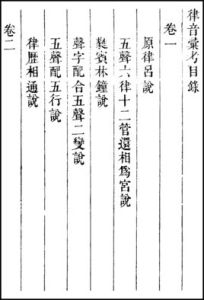 律音彙考目錄
卷一
原律呂說
五聲六律十二管還相爲宮說
蕤賓林鐘說
聲字配合五聲二變說
五聲配五行說
律歷相通說
卷二